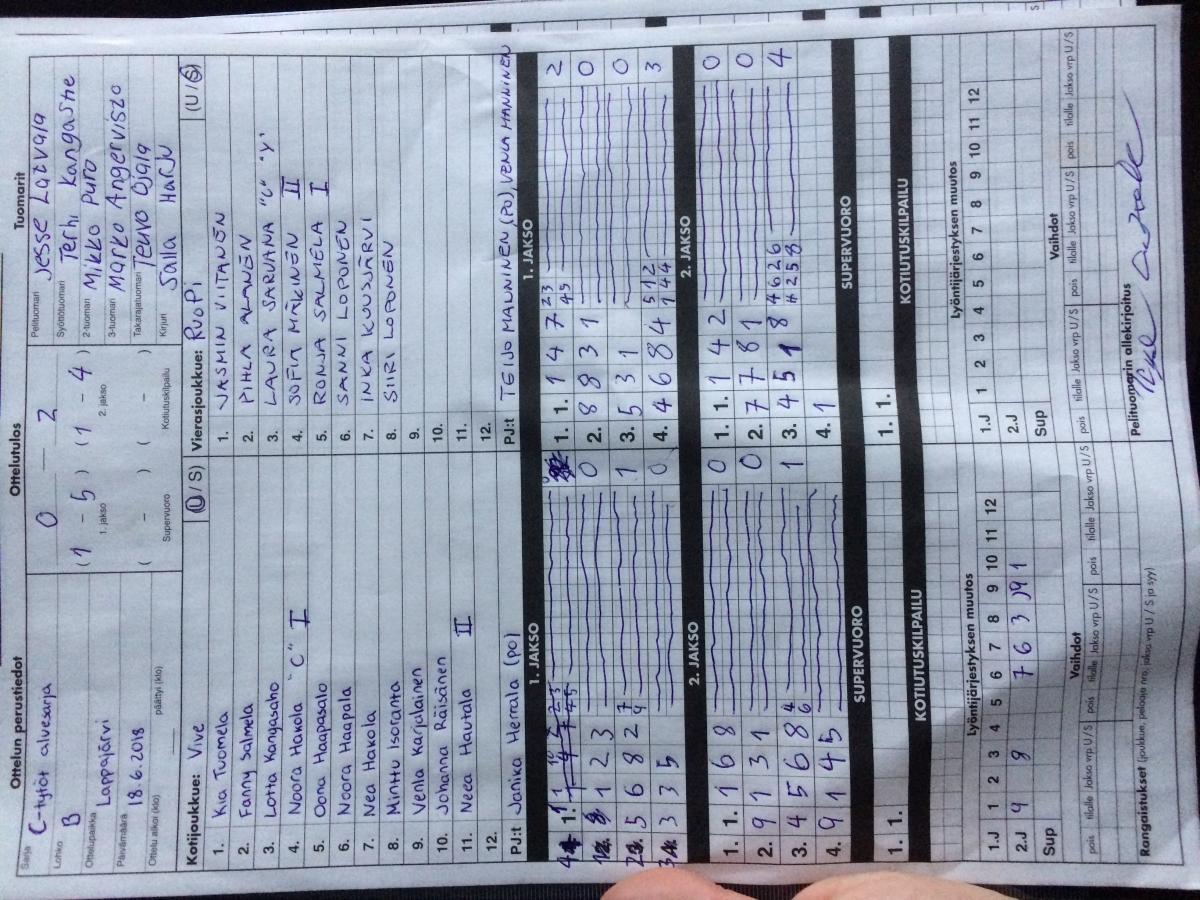 Ottelun perustiedot
Sarja C-tytöt aluesarja
Lohko B
Ottelupaikka Lappajärvi
Päivämäärä 18.6.2018
Ottelu alkoi (klo) päättyi (klo)
Ottelutulos
0 2
(1 - 5) (1 - 4)
1. jakso 2. jakso
( - ) ( - )
Supervuoro Kotiutuskilpailu
Tuomarit
Pelituomari Jesse Latvala
Syöttötuomari Terhi Kangastie
2-tuomari Mikko Puro
3-tuomari Marko Angervisto
Takarajatuomari Teuvo Ojala
Kirjuri Salla Harju
Kotijoukkue: Vive (U / S)
1. Kia Tuomela
2. Fanny Salmela
3. Lotta Kangasaho
4. Noora Hakola "C" I
5. Oona Haapasalo
6. Noora Haapala
7. Nea Hakola
8. Minttu Isoranta
9. Venla Karjalainen
10. Johanna Räisänen
11. Neea Hautala II
12.
PJ:t Janika Herrala (po)
Vierasjoukkue: RuoPi (U / S)
1. JASMIN VIITANEN
2. PIHLA ALANEN
3. LAURA SARVANA "C" "Y"
4. SOFIA MÄKINEN II
5. RONJA SALMELA I
6. SANNI LOPONEN
7. INKA KUUSJÄRVI
8. SIIRI LOPONEN
9.
10.
11.
12.
PJ:t TEIJO MANNINEN (PO), VENLA HANNINEN
1. JAKSO
1 2 3 0
5 6 8 2 7 4 1
3 3 5 0
1. JAKSO
1. 1. 1 4 7 2 3 4 5 2
2. 8 8 3 1 0
3. 5 3 1 0
4. 4 6 8 4 5 1 2 1 4 4 3
2. JAKSO
1. 1. 1 6 8 0
2. 9 1 3 1 0
3. 4 5 6 8 4 6 1
4. 9 1 4 5
2. JAKSO
1. 1. 1 4 2 0
2. 7 7 8 1 0
3. 4 5 1 8 4 6 2 6 4 2 5 8 4
4. 1
SUPERVUORO
1. 1.
KOTIUTUSKILPAILU
SUPERVUORO
1. 1.
KOTIUTUSKILPAILU
Lyöntijärjestyksen muutos
1 2 3 4 5 6 7 8 9 10 11 12
1.J
2.J 4 9 7 6 3 1
Sup
Vaihdot
pois tilalle Jakso vrp U/S pois tilalle Jakso vrp U/S pois tilalle Jakso vrp U/S
Lyöntijärjestyksen muutos
1 2 3 4 5 6 7 8 9 10 11 12
1.J
2.J
Sup
Vaihdot
pois tilalle Jakso vrp U/S pois tilalle Jakso vrp U/S pois tilalle Jakso vrp U/S
Rangaistukset (joukkue, pelaaja nro, jakso vrp U / S ja syy)
Pelituomarin allekirjoitus